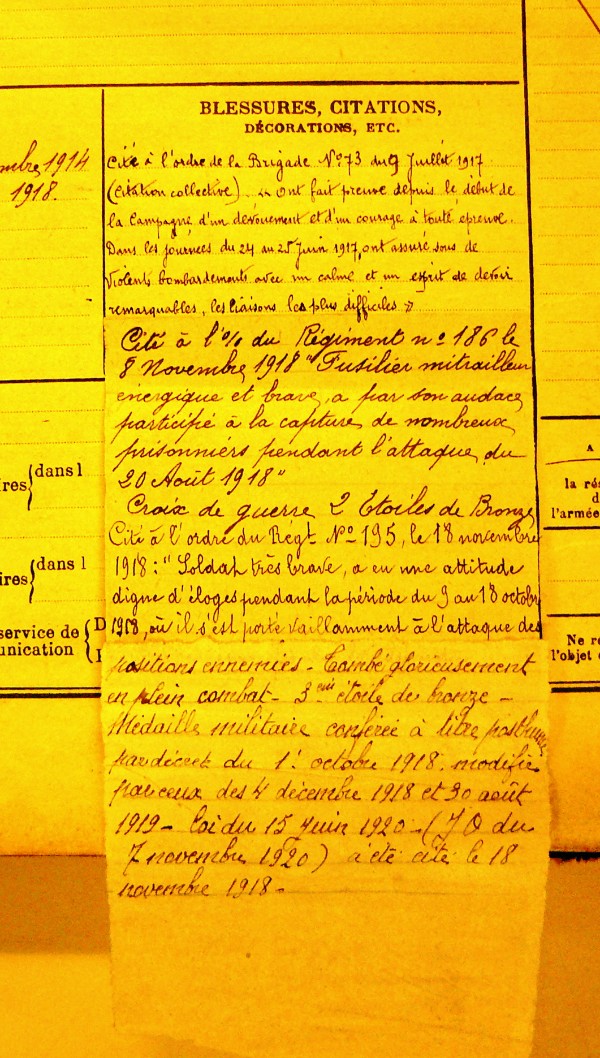 BLESSURES, CITATIONS,
DÉCORATIONS, ETC.
mbre 1914
1918.
Cité à l'ordre de la Brigade N°73 du 9 Juillet 1917
(Citation collective). « Ont fait preuve depuis le début de
la Campagne d'un dévouement et d'un courage à toute épreuve.
Dans les journées du 24 au 25 Juin 1917, ont assuré sous de
Violents bombardements avec un calme et un esprit de devoir
remarquables, les liaisons les plus difficiles »
Cité à l'% du Régiment n° 186 le
8 Novembre 1918 " Fusilier mitrailleur
énergique et brave, a par son audace
participé à la capture de nombreux
prisonniers pendant l'attaque du
20 Août 1918 "
Croix de guerre 2 Etoiles de Bronze
Cité à l'ordre du Régt N° 195, le 18 novembre
1918 : " Soldat très brave, a eu une attitude
digne d'éloges pendant la période du 9 au 18 octobre
1918, où il s'est porté vaillamment à l'attaque des
positions ennemies - Tombé glorieusement
en plein combat - 3eme étoile de bronze -
Médaille militaire conférée à titre posthume
par décret du 1. octobre 1918. modifié
par ceux des 4 décembre 1918 et 30 août
1919 - Loi du 15 Juin 1920 - (JO du
7 novembre 1920) a été cité le 18
novembre 1918 -
res { dans l
ires { dans l
service de { D
unication
A
la rés
d
l'armée
Ne re
l'objet